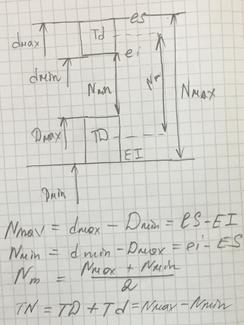 es
dmax
Td
ei
dmin
Nmin
Nm
NMAX
Dmax
TD
EI
Dmin
Nmax = dmax - Dmin = es - EI
Nmin = dmin - Dmax = ei - ES
Nm = Nmax + Nmin
2
TN = TD + Td = Nmax - Nmin